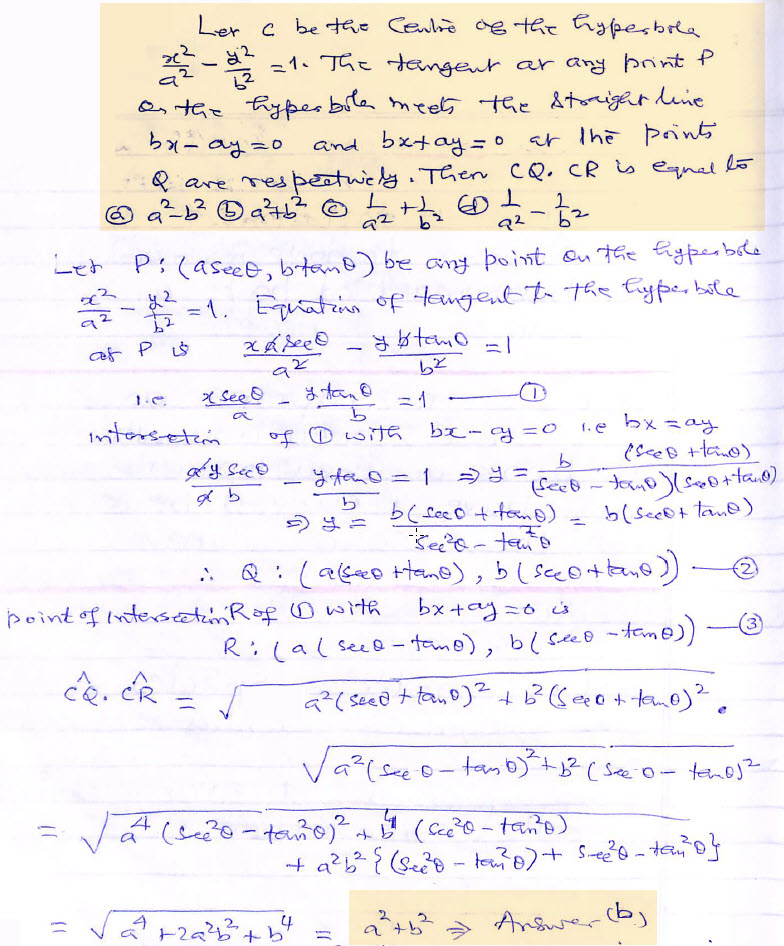 Let C be the Centre of the hyperbola
x²/a² - y²/b² = 1. The tangent at any point P
on the hyperbola meets the straight line
bx - ay = 0 and bx + ay = 0 at the points
Q are respectively. Then CQ. CR is equal to
ⓐ a²-b² ⓑ a²+b² ⓒ 1/a² + 1/b² ⓓ 1/a² - 1/b²
Let P : (a secθ, b tanθ) be any point on the hyperbola
x²/a² - y²/b² = 1. Equation of tangent to the hyperbola
at P is x a secθ/a² - y b tanθ/b² = 1
i.e. x secθ/a - y tanθ/b = 1 —— ①
intersection of ① with bx - ay = 0 i.e bx = ay
a y secθ/a b - y tanθ/b = 1 ⇒ y = b (secθ + tanθ)/(secθ - tanθ)(secθ + tanθ)
⇒ y = b(secθ + tanθ)/sec²θ - tan²θ = b(secθ + tanθ)
∴ Q : (a(secθ + tanθ), b(secθ + tanθ)) —— ②
point of intersection R of ① with bx + ay = 0 is
R : (a(secθ - tanθ), b(secθ - tanθ)) —— ③
CQ. CR = √a²(secθ + tanθ)² + b²(secθ + tanθ)² .
√a²(secθ - tanθ)² + b²(secθ - tanθ)²
= √a⁴(sec²θ - tan²θ)² + b⁴(sec²θ - tan²θ)
+ a²b²{(sec²θ - tan²θ) + sec²θ - tan²θ}
= √a⁴ + 2a²b² + b⁴ = a² + b² ⇒ Answer (b)